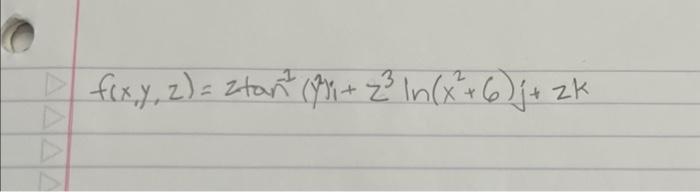 f(x,y,z) = z tan⁻¹(y²)i + z³ ln(x²+6)j + zk